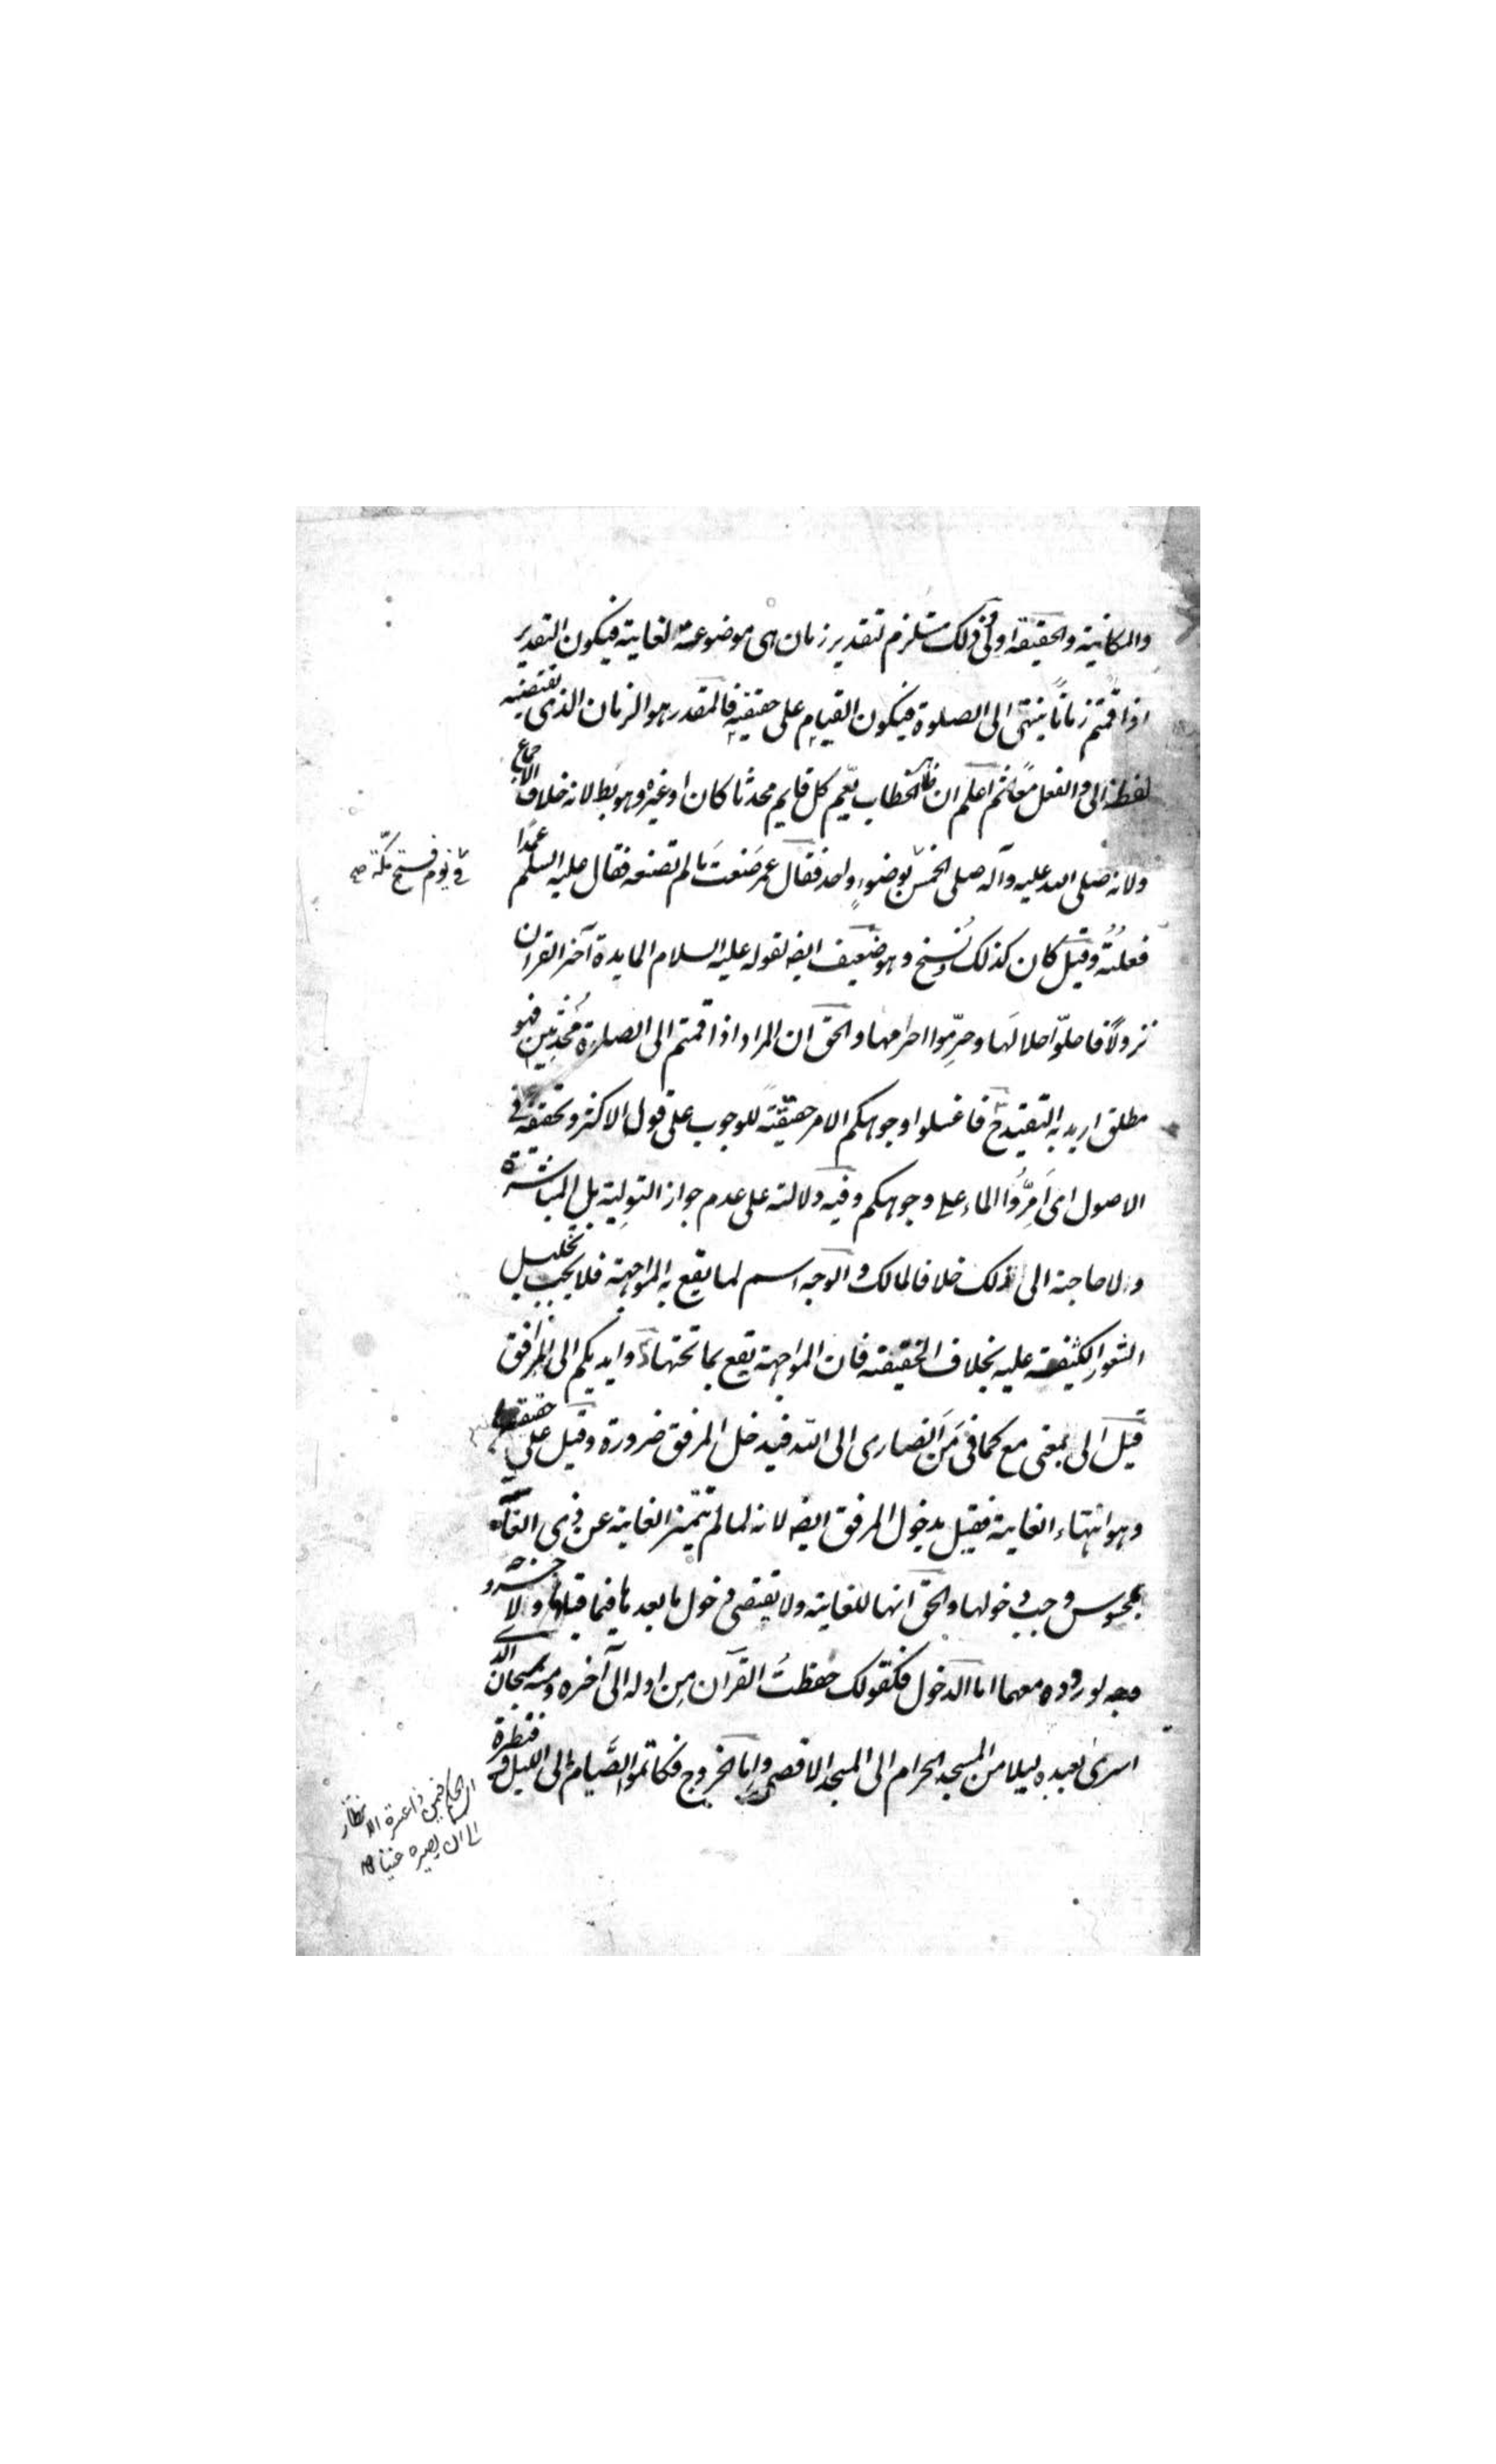 والمكانية والحقيقة اولى وفي ذلك مستلزم لتقدير زمان هي موضوعة لغايته فيكون التقدير
اذا قمتم زمانًا ينتهى الى الصلوة فيكون القيام على حقيقيه فالمقدر هو الزمان الذى يقتضيه
لفظة الى والفعل معًا ثم اعلم ان ظ الخطاب يعّم كل قايم محدثا كان او غيره وهو بط لانه خلاف الاجماع
ولانه صلى الله عليه وآله صلى الخمس بوضوءٍ واحد فقال عمر صَنعتَ ما لم تصنعه فقال عليه السلم عمدًا
في يوم فتح مكّة صح
فعلتُهُ وقيل كان كذلك ونُسخ وهو ضعيف ايض لقوله عليه السلام المايدة آخر القران
نزولًا فاحلّوا حلالَها وحرّموا حرامها والحق ان المراد اذا قمتم الى الصلوة مُحْدِثين فهو
مطلق اريد به التقييد ح فاغسلوا وجوهكم الامر حقيقةً للوجوب على قول الاكثر وتحقيقه في
الاصول اى اَمِرُّوا الماء على وجوهكم وفيه دلالة على عدم جواز التولية بل المباشرة
ولا حاجة الى ذلك خلافا لمالك و الوجه اسم لما يقع به المواجهة فلا يجب تخليل
الشعور الكثيفة عليه بخلاف الخفيفة فان المواجهة تقع بما تحتها وايديكم الى المرافق
قيل الى بمعنى مع كما في مَن اَنصارى الى الله فيدخل المرفق ضرورة وقيل على حقيقتها
وهو انتهاء الغاية فقيل بدخول المرفق ايض لانه لما لم تتميز الغاية عن ذى الغاية
بمحسوس وجب دخولها والحق انها للغاية ولا يقتضى دخول ما بعدها فيما قبلها ولا خروجه
لوروده معهما اما الدخول فكقولك حفظتُ القرآن مِن اوله الى آخره ومنه سبحان الذى
اسرى بعبده ليلا من المسجد الحرام الى المسجد الاقصى واما الخروج فكاتموا الصّيام الى الليل و فنظرة